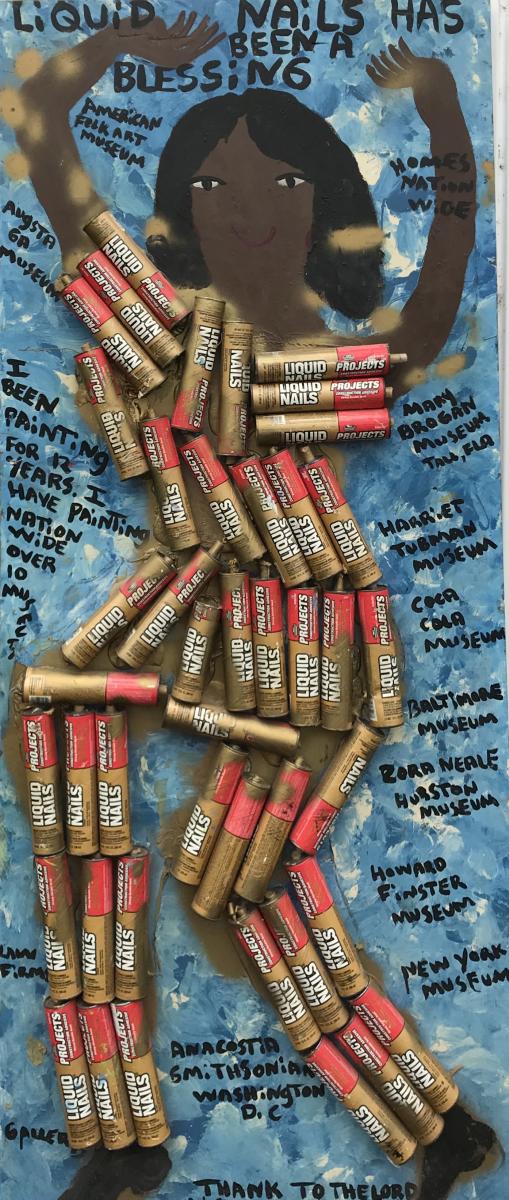 LIQUID NAILS HAS
BEEN A
BLESSING
AMERICAN
FOLK ART
MUSEUM
HOMES
NATION
WIDE
AUGSTA
GA
MUSEUM
I
BEEN
PAINTING
FOR 12
YEARS, I
HAVE PAINTING
NATION
WIDE
OVER
10
MARY
BROGAN
MUSEUM
TALL, FLA
HARRIET
TUBMAN
MUSEUM
COCA
COLA
MUSEUM
BALTIMORE
MUSEUM
ZORA NEALE
HURSTON
MUSEUM
HOWARD
FINSTER
MUSEUM
NEW YORK
MUSEUM
LAW
FIRM
ANACOSTIA
SMITHSONIAN
WASHINGTON
D.C
GALLER
THANK TO THE LORD
LIQUID
NAILS
PROJECTS